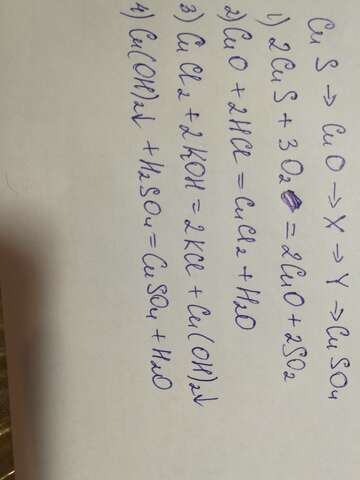 CuS → CuO → X → Y → CuSO4
1) 2CuS + 3O2 = 2CuO + 2SO2
2) CuO + 2HCl = CuCl2 + H2O
3) CuCl2 + 2KOH = 2KCl + Cu(OH)2↓
4) Cu(OH)2↓ + H2SO4 = CuSO4 + H2O